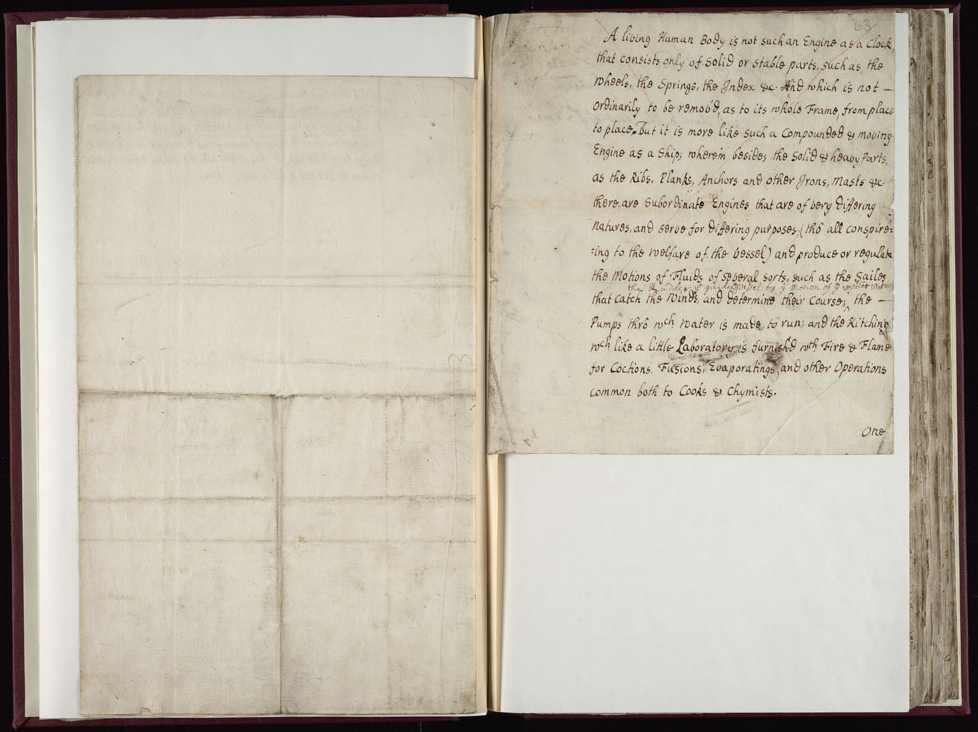 63
A living Human Body is not such an Engine as a Clock
that consists only of Solid or stable parts, such as the
wheels, the Springs, the Index &c. And which is not —
Ordinarily to be remov'd, as to its whole Frame, from place
to place, but it is more like such a Compounded & moving
Engine as a Ship; wherein besides the Solid & heavy Parts,
as the Ribs, Planks, Anchors and other Irons, Masts &c
there are Subordinate Engines that are of very Differing
natures, and serve for differing purposes, (tho' all conspire-
:ing to the welfare of the vessel) and produce or regulate
the Motions of Fluids of several sorts, such as the Sailes
the Rudder yt guides by ye motion of ye exterior water
that catch the Winds, and determine their Course; the —
Pumps thrô wch water is made to run; and the Kitching
wch like a little Laboratory is furnish'd wth Fire & Flame
for Coctions, Fusions, Evaporatings, and other Operations
common both to Cooks & Chymists.
One